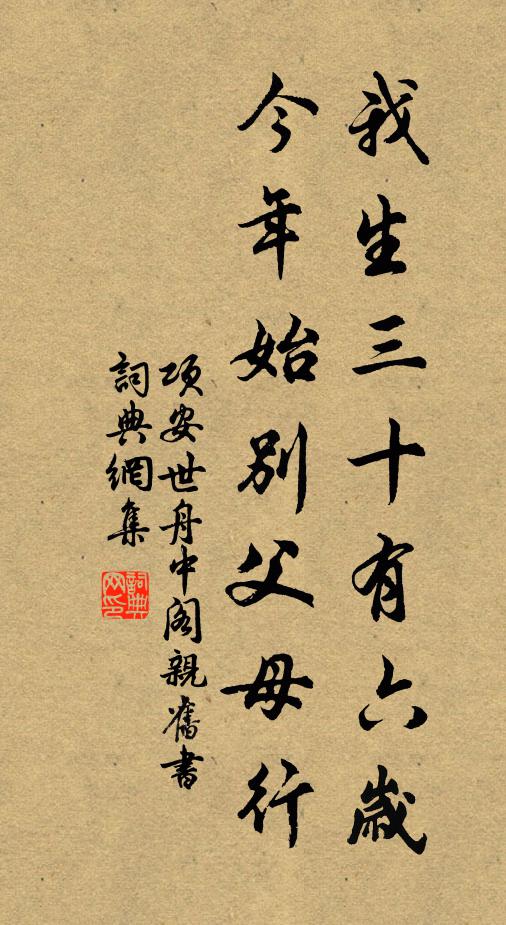 我生三十有六歲
今年始別父母行
項安世舟中閣親舊書
詞典網集
詞典网印